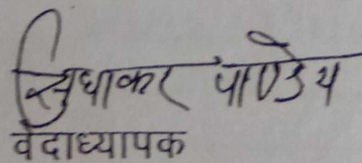 सुधाकर पाण्डेय
वेदाध्यापक